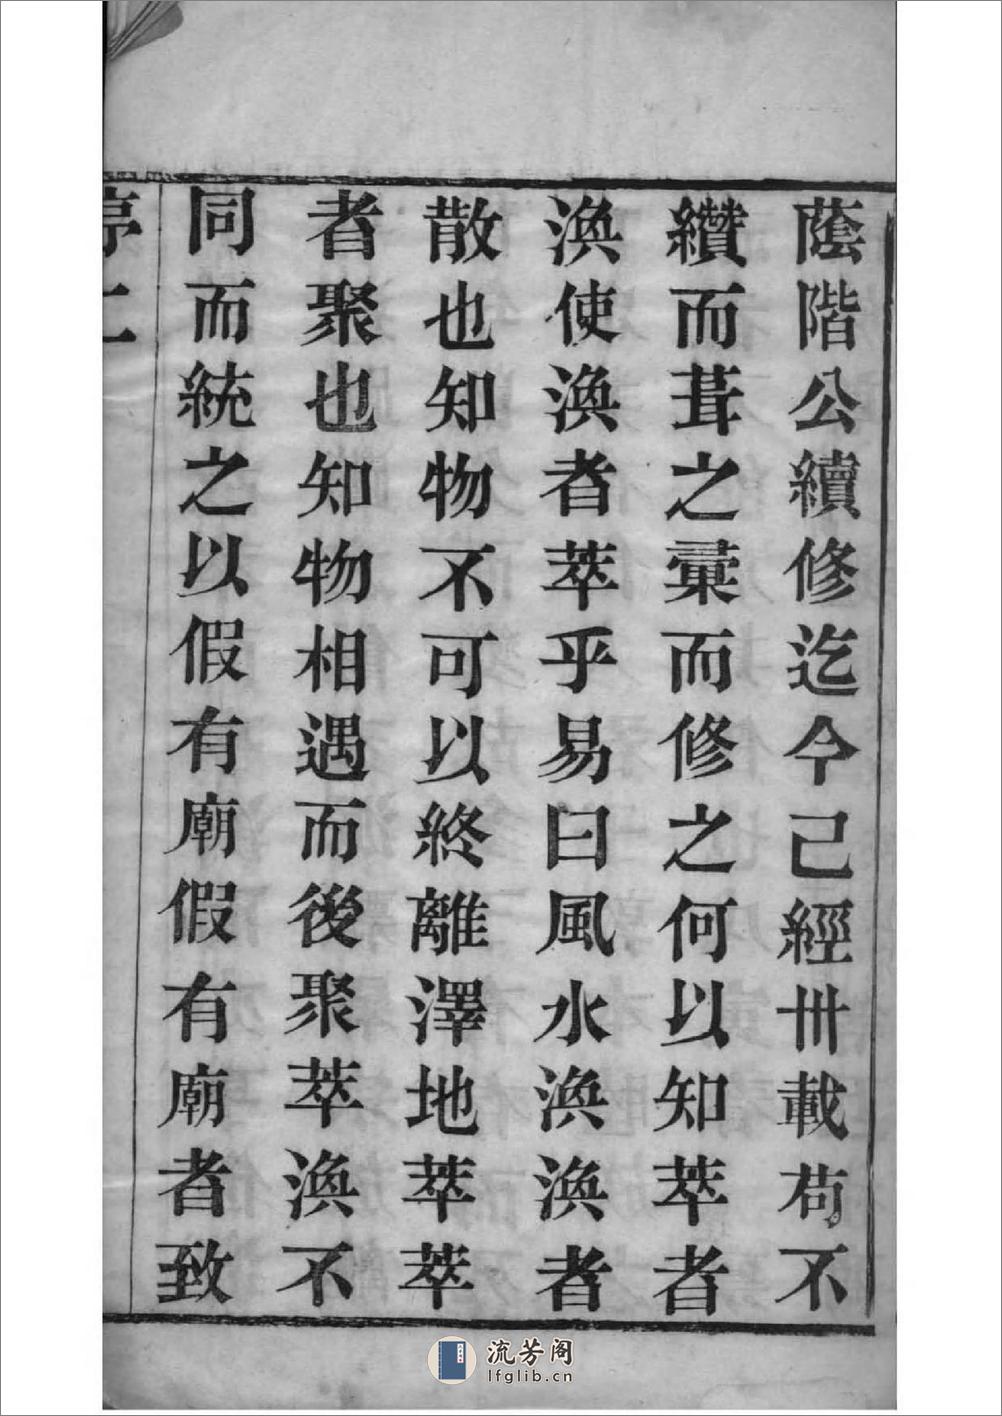 蔭階公續修迄今己經卅載苟不
纘而葺之彚而修之何以知萃者
渙使渙者萃乎易曰風水渙渙者
散也知物不可以終離澤地萃萃
者聚也知物相遇而後聚萃渙不
同而統之以假有廟假有廟者致
序二
流芳阁
lfglib.cn